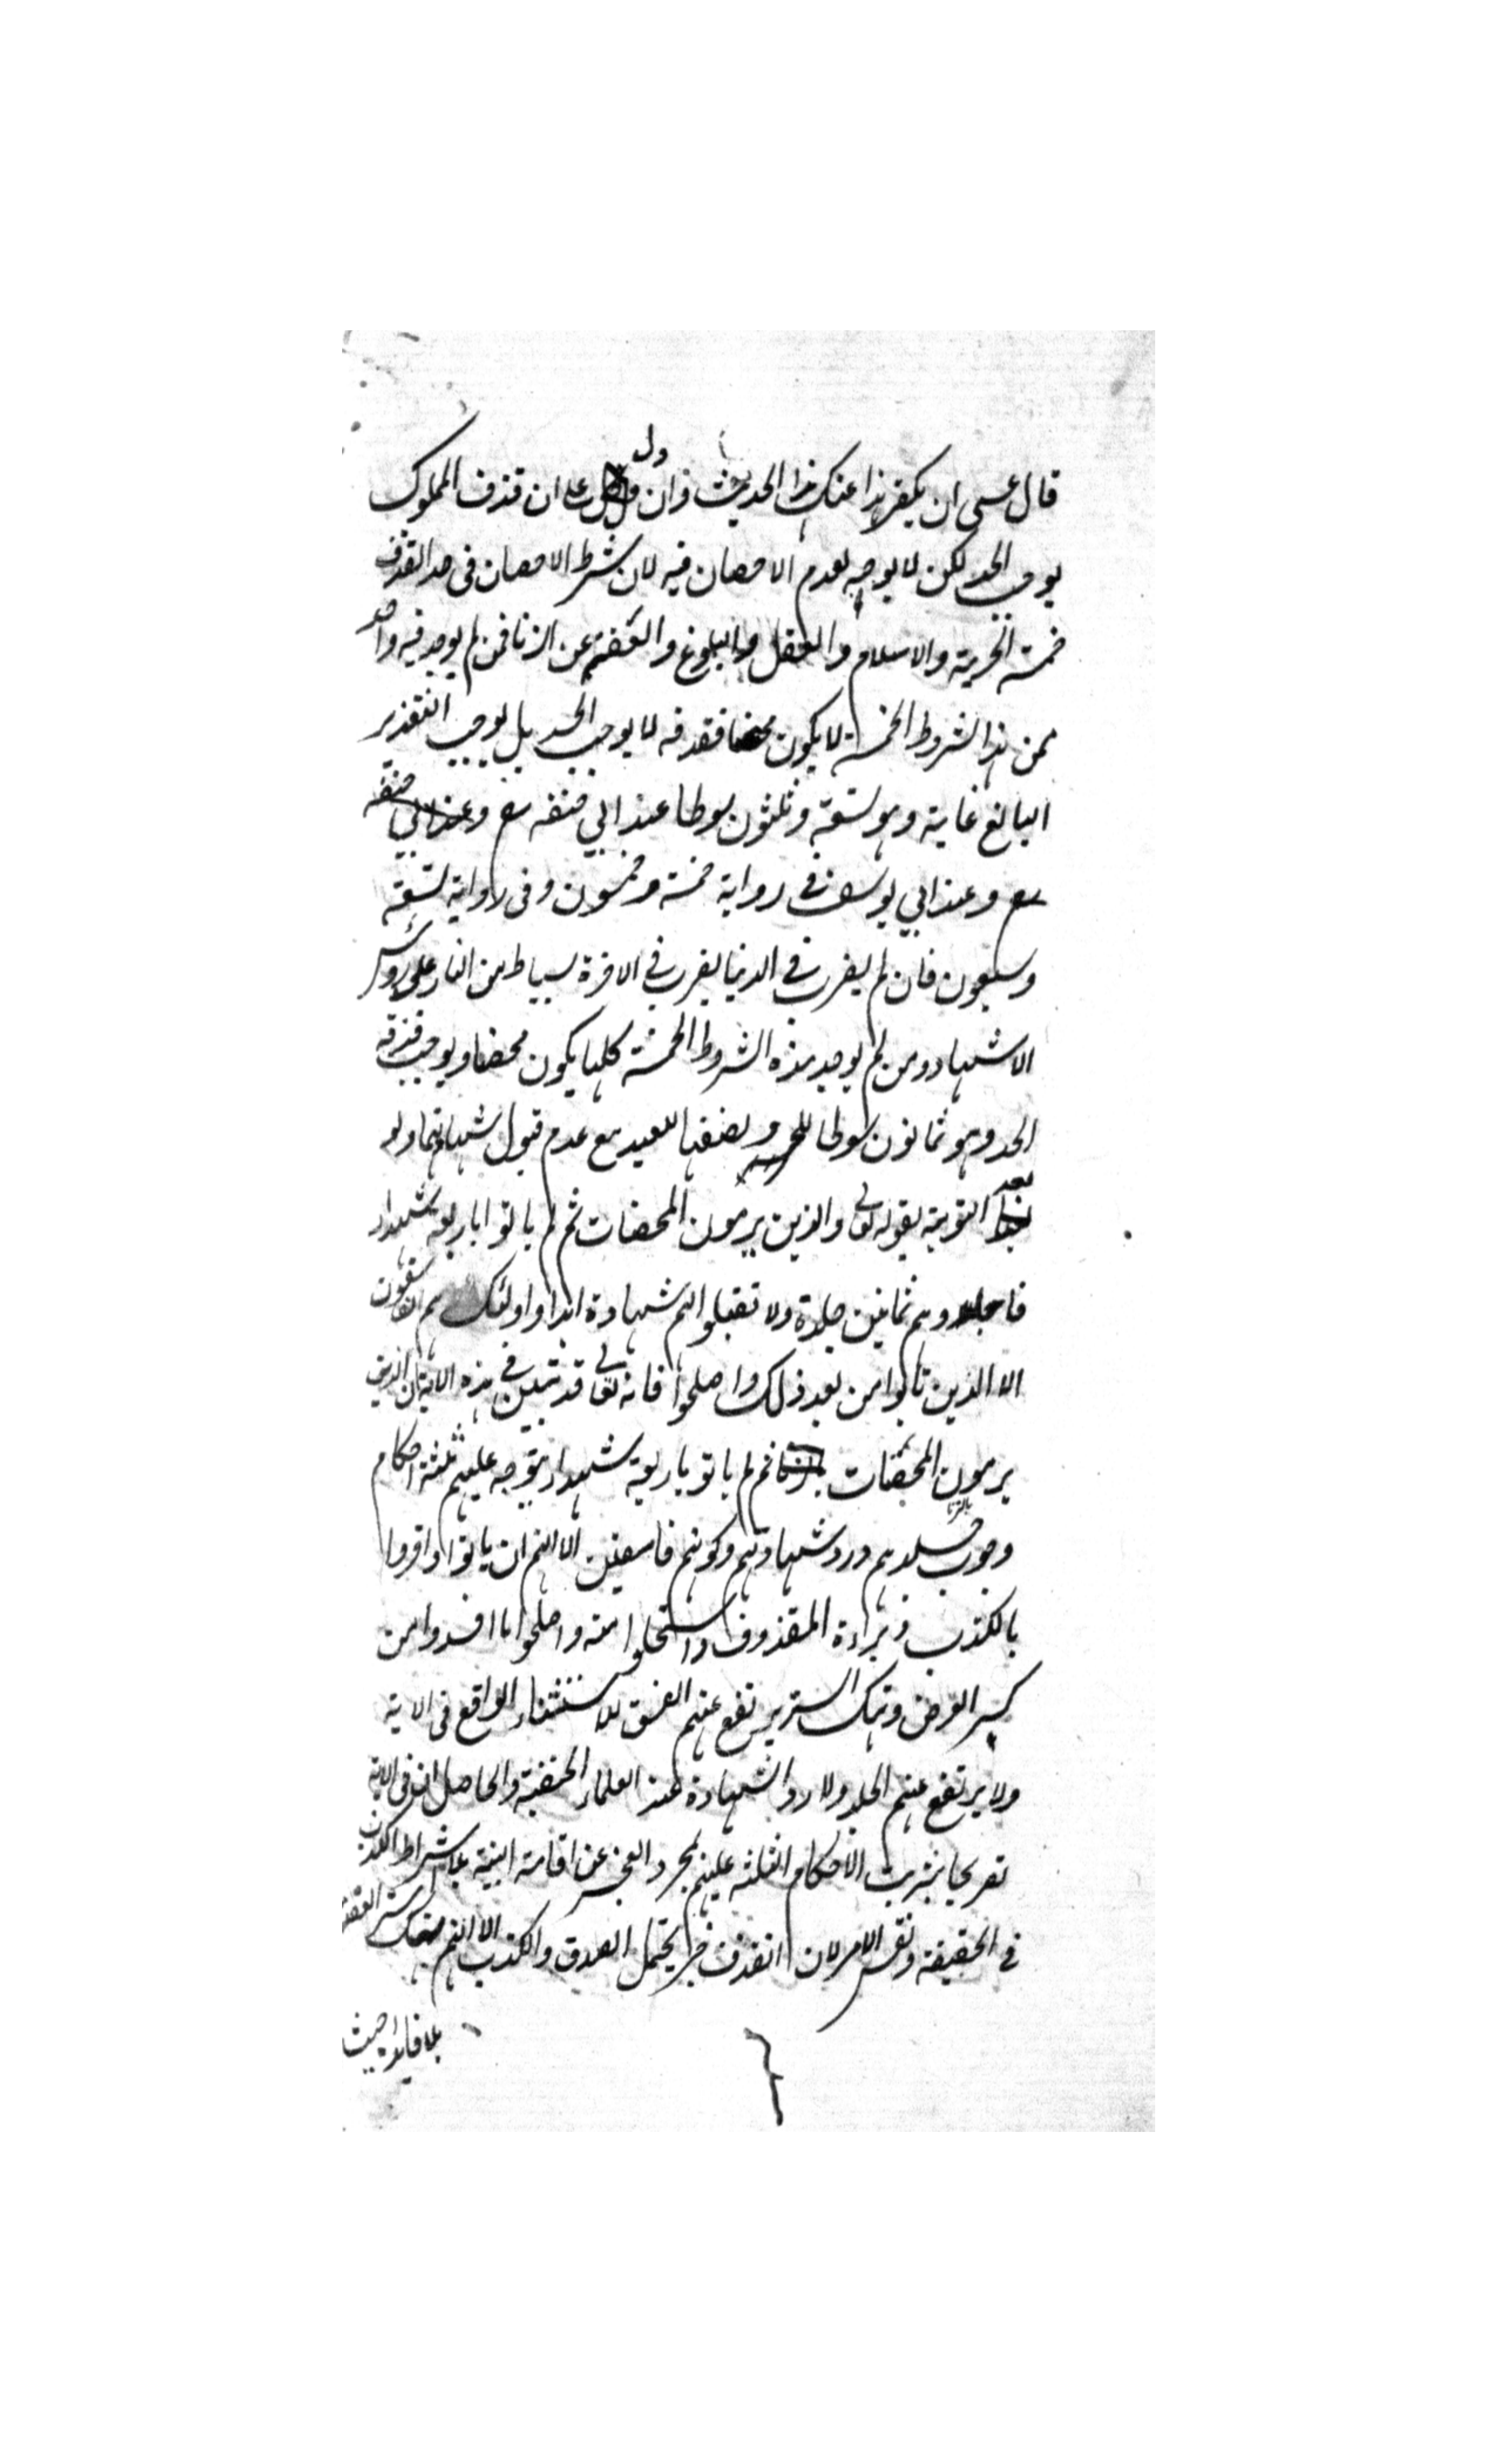 قال عسى ان يكفر هذا عنك هذا الحديث وان دل على ان قذف المملوك
يوجب الحد لكن لا يوجبه لعدم الاحصان فيه لان شرط الاحصان فى حد القذف
خمسة الحرية والاسلام والعقل والبلوغ والعفة عن الزنا فمن لم يوجد فيه واحد
من هذا الشروط الخمسة لا يكون محصنا فقذفه لا يوجب الحد بل يوجب التعذير
البالغ غاية وهو تسعة وثلثون سوطا عند ابي حنيفه رح وعند ابي حنيفه
رح وعند ابي يوسف في رواية خمسة وخمسون وفى رواية تسعة
وسبعون فان لم يضرب في الدنيا يضرب في الاخرة بسياط من النار على رؤس
الاشهاد ومن لم يوجد هذه الشروط الخمسة كلها يكون محصنا ويوجب قذفه
الحد وهو ثمانون سوطا للحر ونصفها للعبد مع عدم قبول شهادتهما ولو
بعد التوبة بقوله تعالى والذين يرمون المحصنات ثم لم ياتوا باربعة شهداء
فاجلدوهم ثمانين جلدة ولا تقبلوا لهم شهادة ابدا واولئك هم الفاسقون
الا الذين تابوا من بعد ذلك واصلحوا فانه تعالى قد بين في هذه الاية ان الذين
يرمون المحصنات بالزنا ثم لم ياتو باربعة شهداء يتوجه عليهم ثلثة احكام
وجوب جلدهم ورد شهادتهم وكونهم فاسقين الا انهم ان تابوا واقروا
بالكذب وبراءة المقذوف واستحلوا منه واصلحوا ما افسدوا من
كسر العرض وهتك الستر يرتفع عنهم الفسق للاستثناء الواقع فى الاية
ولا يرتفع عنهم الجلد ولا رد الشهادة عند العلماء الحنفية والحاصل ان فى الاية
تصريحا بترتب الاحكام الثلثه عليهم بمجرد العجز عن اقامة البينة بلا اشتراط الكذب
في الحقيقة ونفس الامر لان القذف خبر يحتمل الصدق والكذب الا انهم هتك ستر العفة
بلا فائدة حيث